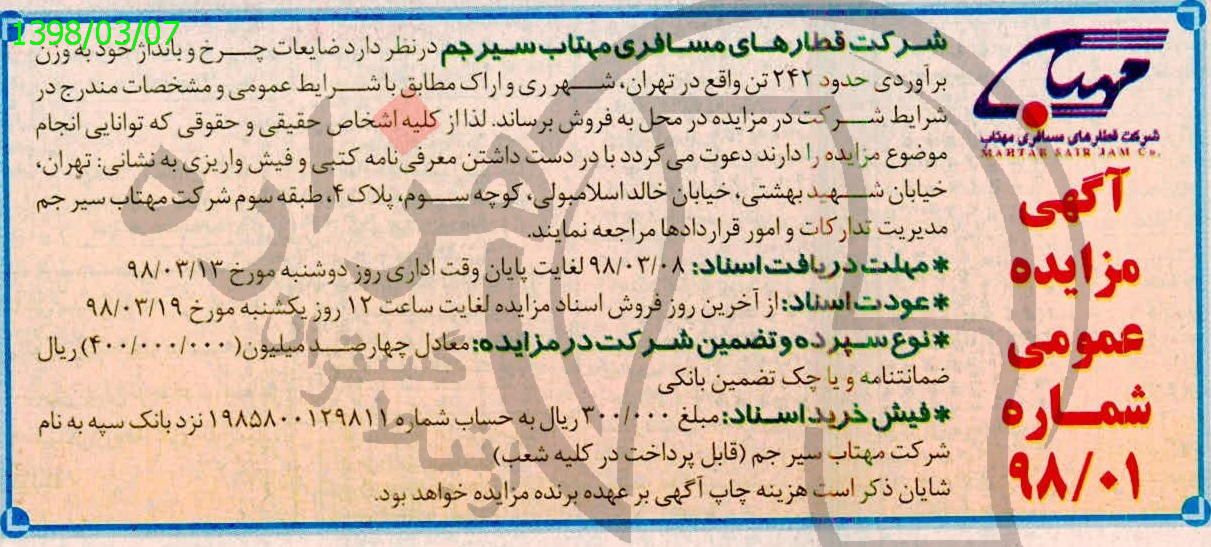 1398/03/07
مهتاب
شرکت قطارهای مسافری مهتاب
MAHTAB SAIR JAM Co.
آگهی
مزایده
عمومی
شماره
۹۸/۰۱
شرکت قطارهای مسافری مهتاب سیر جم در نظر دارد ضایعات چرخ و بانداژ خود به وزن
برآوردی حدود ۲۴۲ تن واقع در تهران، شهر ری و اراک مطابق با شرایط عمومی و مشخصات مندرج در
شرایط شرکت در مزایده در محل به فروش برساند. لذا از کلیه اشخاص حقیقی و حقوقی که توانایی انجام
موضوع مزایده را دارند دعوت می گردد با در دست داشتن معرفی نامه کتبی و فیش واریزی به نشانی: تهران،
خیابان شهید بهشتی، خیابان خالد اسلامبولی، کوچه سوم، پلاک ۴، طبقه سوم شرکت مهتاب سیر جم
مدیریت تدارکات و امور قراردادها مراجعه نمایند.
* مهلت دریافت اسناد: ۹۸/۰۳/۰۸ لغایت پایان وقت اداری روز دوشنبه مورخ ۹۸/۰۳/۱۳
* عودت اسناد: از آخرین روز فروش اسناد مزایده لغایت ساعت ۱۲ روز یکشنبه مورخ ۹۸/۰۳/۱۹
* نوع سپرده و تضمین شرکت در مزایده: معادل چهارصد میلیون( ۴۰۰/۰۰۰/۰۰۰) ریال
ضمانتنامه و یا چک تضمین بانکی
* فیش خرید اسناد: مبلغ ۳۰۰/۰۰۰ ریال به حساب شماره ۱۹۸۵۸۰۰۱۲۹۸۱۱ نزد بانک سپه به نام
شرکت مهتاب سیر جم (قابل پرداخت در کلیه شعب)
شایان ذکر است هزینه چاپ آگهی بر عهده برنده مزایده خواهد بود.
هزاره
گستران